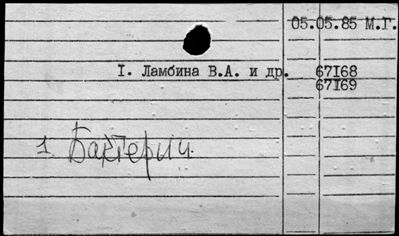 05.05.85 М.Г.
I. Ламбина В.А. и др. 67I68
67I69
1 Бактерии